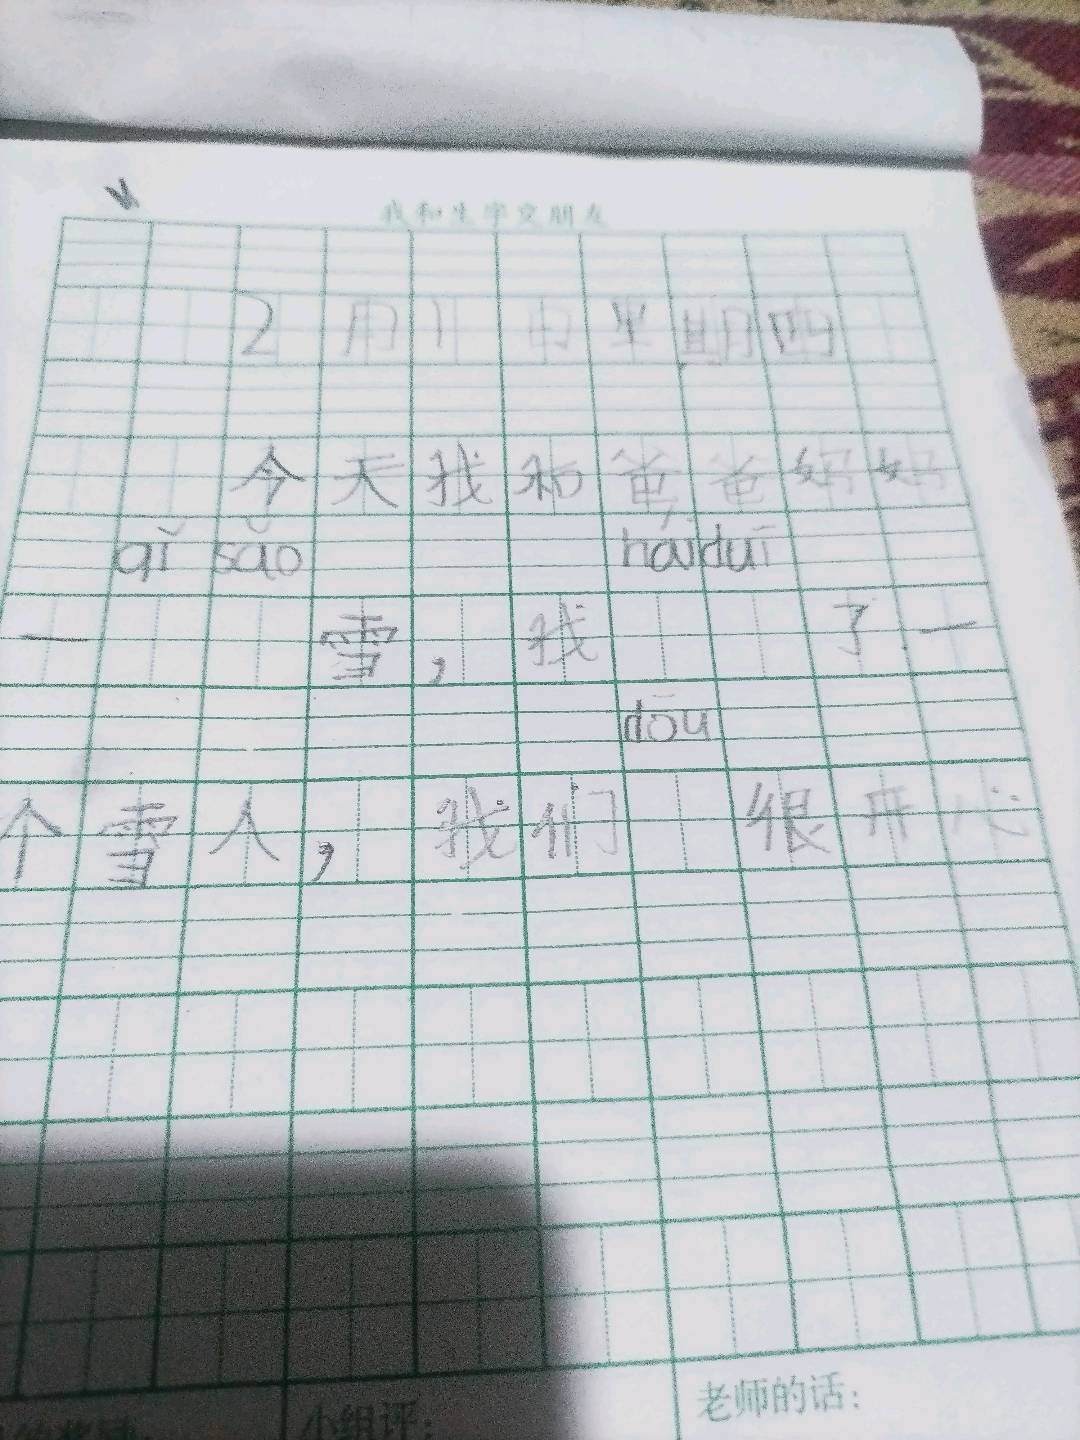 我和生字交朋友
2月1日星期四
今天我和爸爸妈妈
qǐ sǎo hái duī
一 雪，我 了一
dōu
个雪人，我们 很开心
小组评：
老师的话：